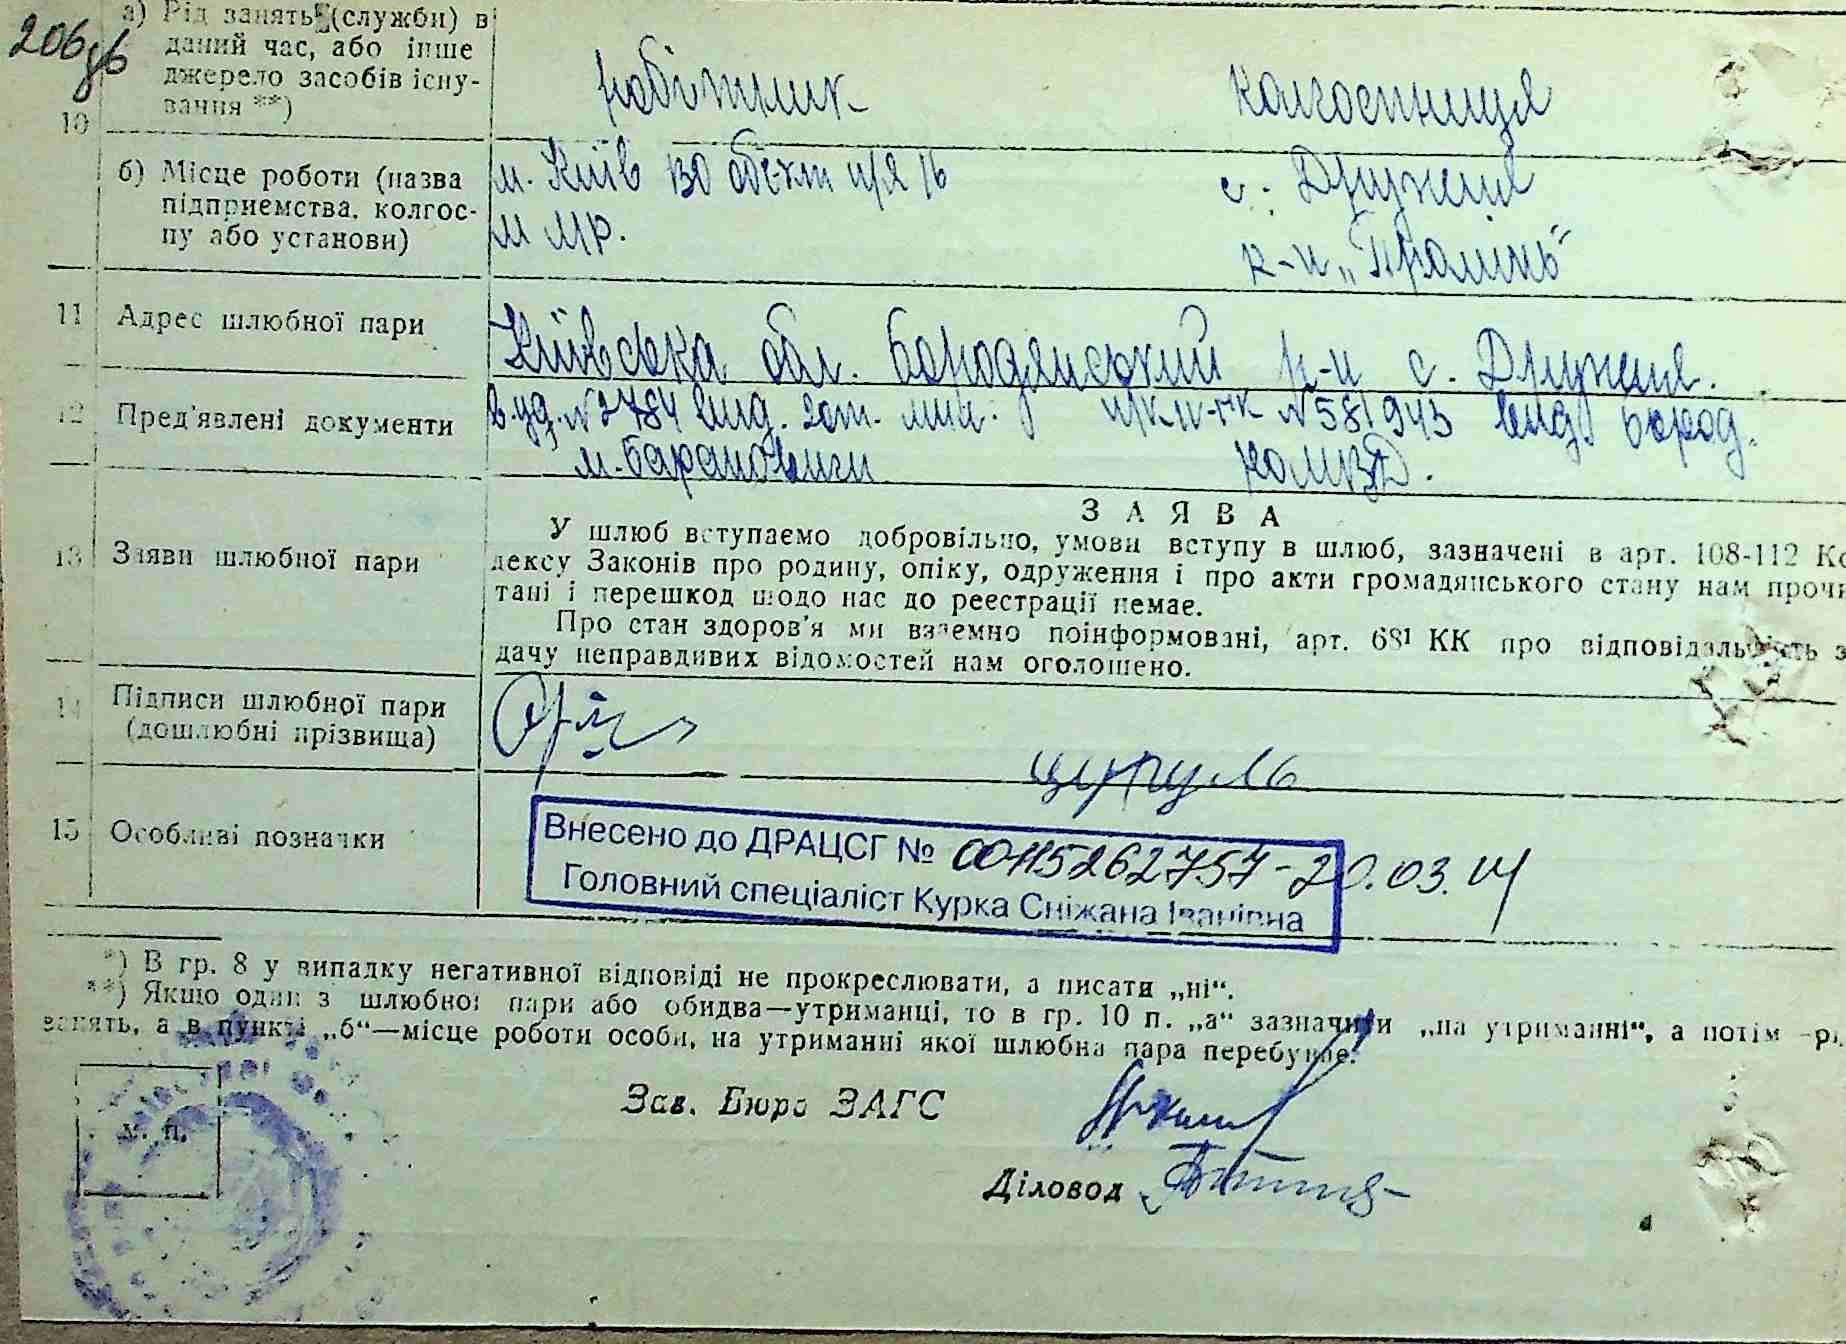 206зв
а) Рід занять (служби) в
даний час, або інше
джерело засобів існу-
вання **)
робітник колгоспниця
10
б) Місце роботи (назва
підприємства, колгос-
пу або установи)
м. Київ п/я 16 с. Дружня
к-п „Промінь“
11 Адрес шлюбної пари
Київська обл. Бородянський р-н с. Дружня.
12 Пред'явлені документи
в. уд. №2784 вид. №581943 вид. Бород.
м. Барановичи
13 Заяви шлюбної пари
ЗАЯВА
У шлюб вступаємо добровільно, умови вступу в шлюб, зазначені в арт. 108-112 Ко
дексу Законів про родину, опіку, одруження і про акти громадянського стану нам прочи
тані і перешкод щодо нас до реєстрації немає.
Про стан здоров'я ми взаємно поінформовані, арт. 68¹ КК про відповідальність з
дачу неправдивих відомостей нам оголошено.
14 Підписи шлюбної пари
(дошлюбні прізвища)
Цуруль
15 Особливі позначки
Внесено до ДРАЦСГ № 00115262757-20.03.14
Головний спеціаліст Курка Сніжана Іванівна
*) В гр. 8 у випадку негативної відповіді не прокреслювати, а писати „ні“.
**) Якщо один з шлюбної пари або обидва—утриманці, то в гр. 10 п. „а“ зазначити „на утриманні“, а потім -рі
занять, а в пункті „б“—місце роботи особи, на утриманні якої шлюбна пара перебуває.
м. п.
Зав. Бюро ЗАГС
Діловод